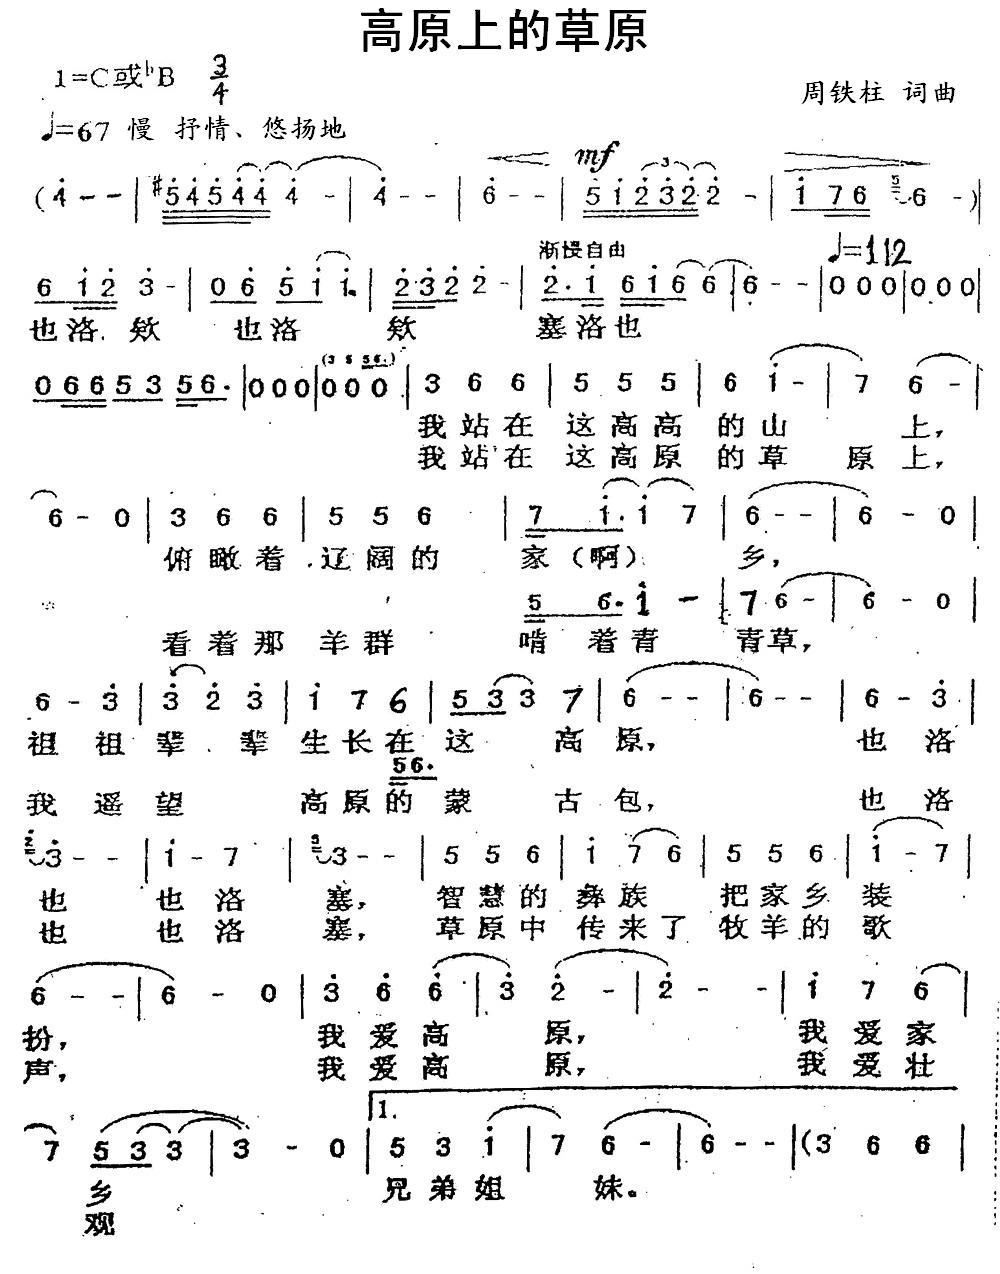 高原上的草原
1=C或♭B 3/4
周铁柱 词曲
♩=67 慢 抒情、悠扬地
mf
(4 - - | #5 4 5 4 4 4 - | 4 - - | 6 - - | 5 1 2 3 2 2 - | 1 7 6 5 6 - )
渐慢自由 ♩=112
6 1 2 3 - | 0 6 5 1 1. | 2 3 2 2 - | 2. 1 6 1 6 6 | 6 - - | 0 0 0 | 0 0 0
也洛欸 也洛 欸 塞洛也
(3 6 56.)
0 6 6 5 3 5 6. | 0 0 0 | 0 0 0 | 3 6 6 | 5 5 5 | 6 1 - | 7 6 - |
我站在 这高高 的山 上,
我站在 这高原 的草 原上,
6 - 0 | 3 6 6 | 5 5 6 | 7 1. 1 7 | 6 - - | 6 - 0 |
俯瞰着 辽阔的 家(啊) 乡,
5 6. 1 - | 7 6 - | 6 - 0 |
看着那 羊群 啃着青 青草,
6 - 3 | 3 2 3 | 1 7 6 | 5 3 3 7 | 6 - - | 6 - - | 6 - 3 |
祖祖辈辈 生长在这 高原, 也洛
56.
我遥望 高原的蒙 古包, 也洛
2 3 - - | 1 - 7 | 5 3 - - | 5 5 6 | 1 7 6 | 5 5 6 | 1 - 7 |
也 也洛 塞, 智慧的 彝族 把家乡装
也 也洛 塞, 草原中 传来了 牧羊的歌
6 - - | 6 - 0 | 3 6 6 | 3 2 - | 2 - - | 1 7 6 |
扮, 我爱高 原, 我爱家
声, 我爱高 原, 我爱壮
1.
7 5 3 3 | 3 - 0 | 5 3 1 | 7 6 - | 6 - - | (3 6 6 |
乡 兄弟姐 妹。
观